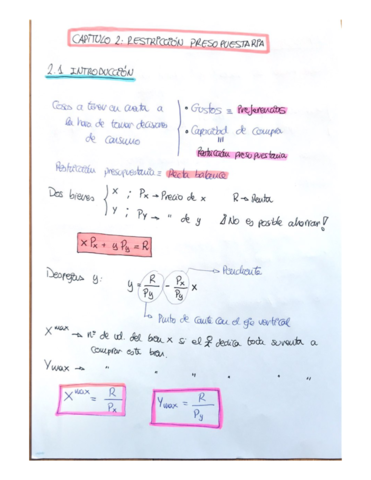 CAPÍTULO 2: RESTRICCIÓN PRESUPUESTARIA
2.1 INTRODUCCIÓN
Cosas a tener en cuenta a
la hora de tomar decisiones
de consumo
• Gustos = Preferencias
• Capacidad de compra
=
Restricción presupuestaria
Restricción presupuestaria = Recta balance
Dos bienes
X ; Px → Precio de x R → Renta
Y ; Py → " de y ¡No es posible ahorrar!
x Px + y Py = R
Despejas y: y = R/Py - Px/Py x
→ Pendiente
→ Punto de corte con el eje vertical
X max → nº de ud. del bien x si el dedica toda su renta a
comprar este bien.
Y max → " " " " " "
X max = R/Px
Y max = R/Py